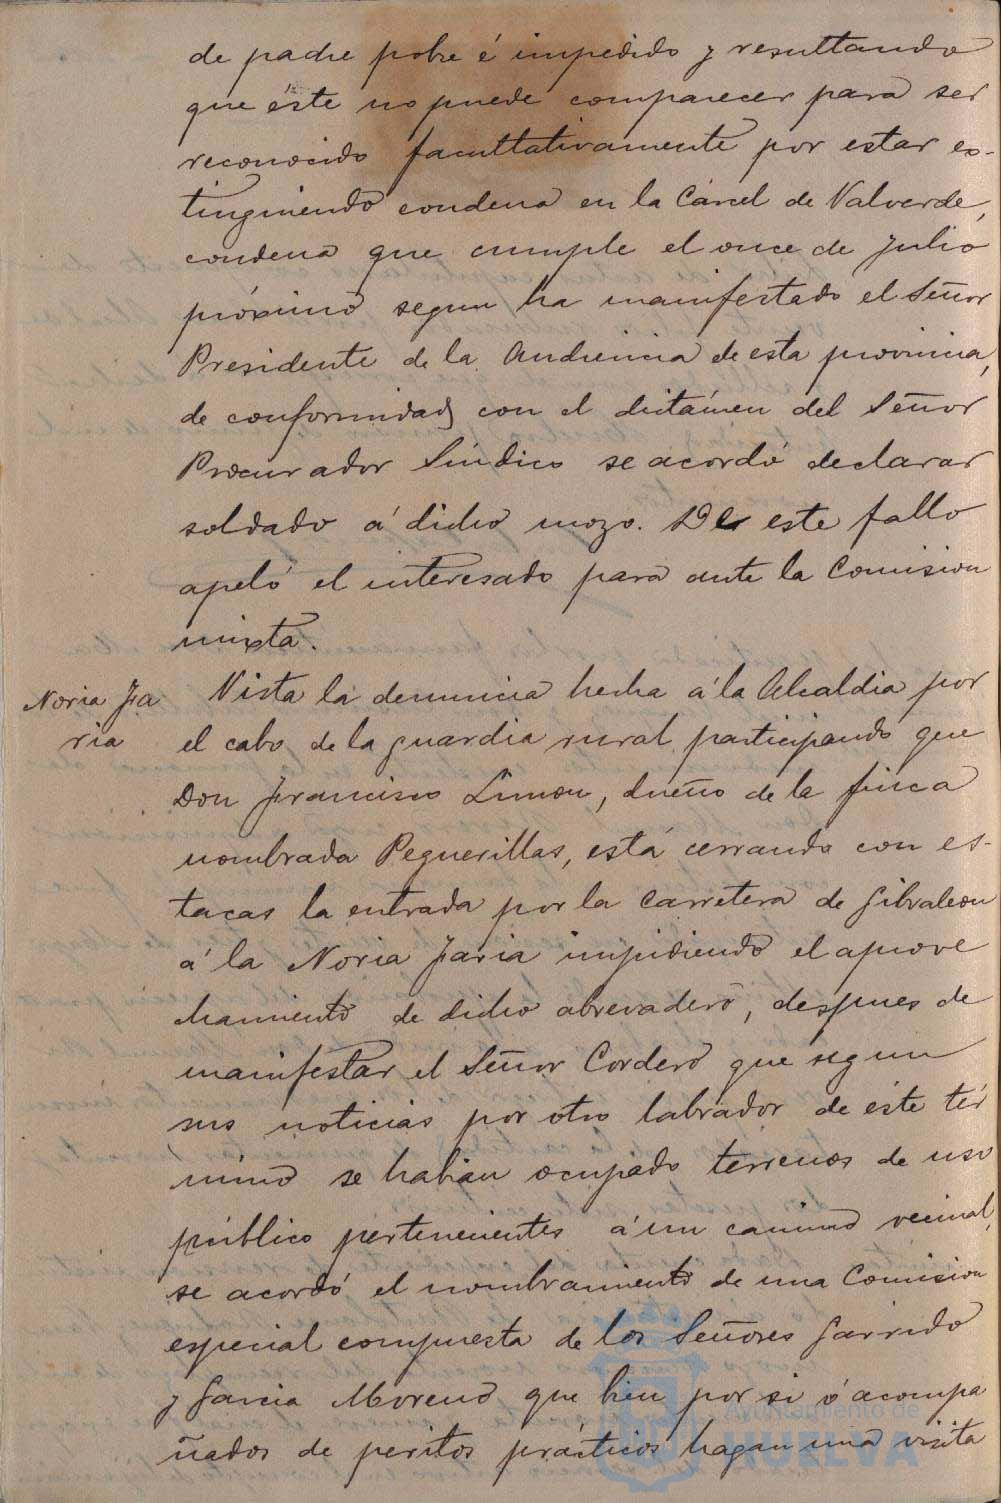 de padre pobre é impedido y resultando
que éste no puede comparecer para ser
reconocido facultativamente por estar ex-
tinguiendo condena en la Cárcel de Valverde,
condena que cumple el once de Julio
próximo segun ha manifestado el Señor
Presidente de la Audiencia de esta provincia,
de conformidad con el dictámen del Señor
Procurador Síndico se acordó declarar
soldado á dicho mozo. De este fallo
apeló el interesado para ante la Comision
mixta.
Noria Ja
ria
Vista la denuncia hecha á la Alcaldia por
el cabo de la guardia rural participando que
Don Francisco Limon, dueño de la finca
nombrada Peguerillas, está cerrando con es-
tacas la entrada por la Carretera de Gibraleon
á la Noria Jaria impidiendo el aprove
chamiento de dicho abrevadero, despues de
manifestar el Señor Cordero que segun
sus noticias por otro labrador de éste tér
mino se habian ocupado terrenos de uso
público pertenecientes á un camino vecinal,
se acordó el nombramiento de una Comision
especial compuesta de los Señores Garrido
y Garcia Moreno que bien por si ó acompa
ñados de peritos prácticos hagan una visita
Ayuntamiento de
HUELVA